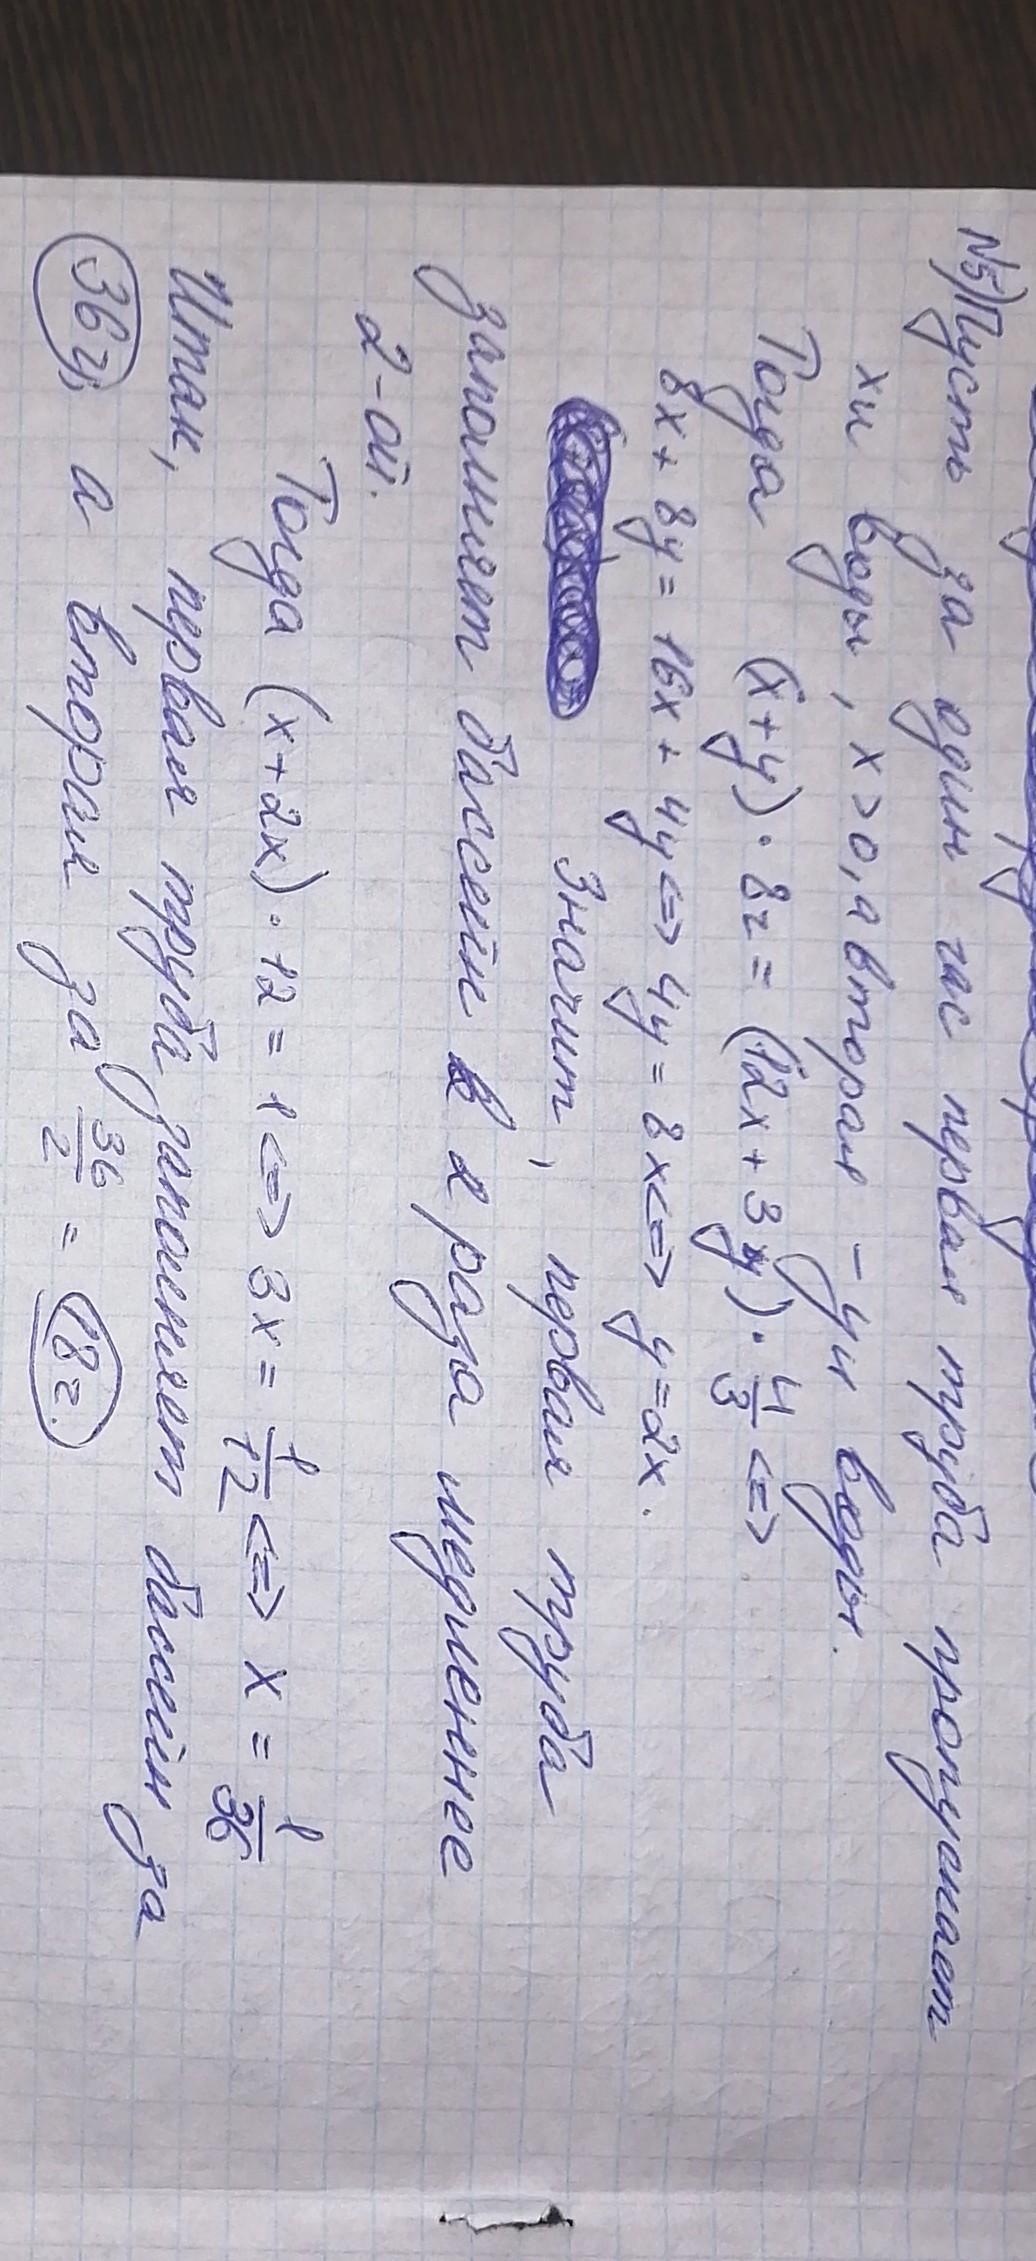 №5) Пусть за один час первая труба пропускает
x л воды, x>0, а вторая – y л воды.
Тогда (x+y)·8 = (12x+3y)·4/3 <=>
8x+8y = 16x+4y <=> 4y = 8x <=> y=2x.
Значит, первая труба
заполняет бассейн в 2 раза медленнее
2-ой.
Тогда (x+2x)·12 = 1 <=> 3x = 1/12 <=> x = 1/36
Итак, первая труба заполняет бассейн за
36 ч, а вторая за 36/2 = 18 ч.